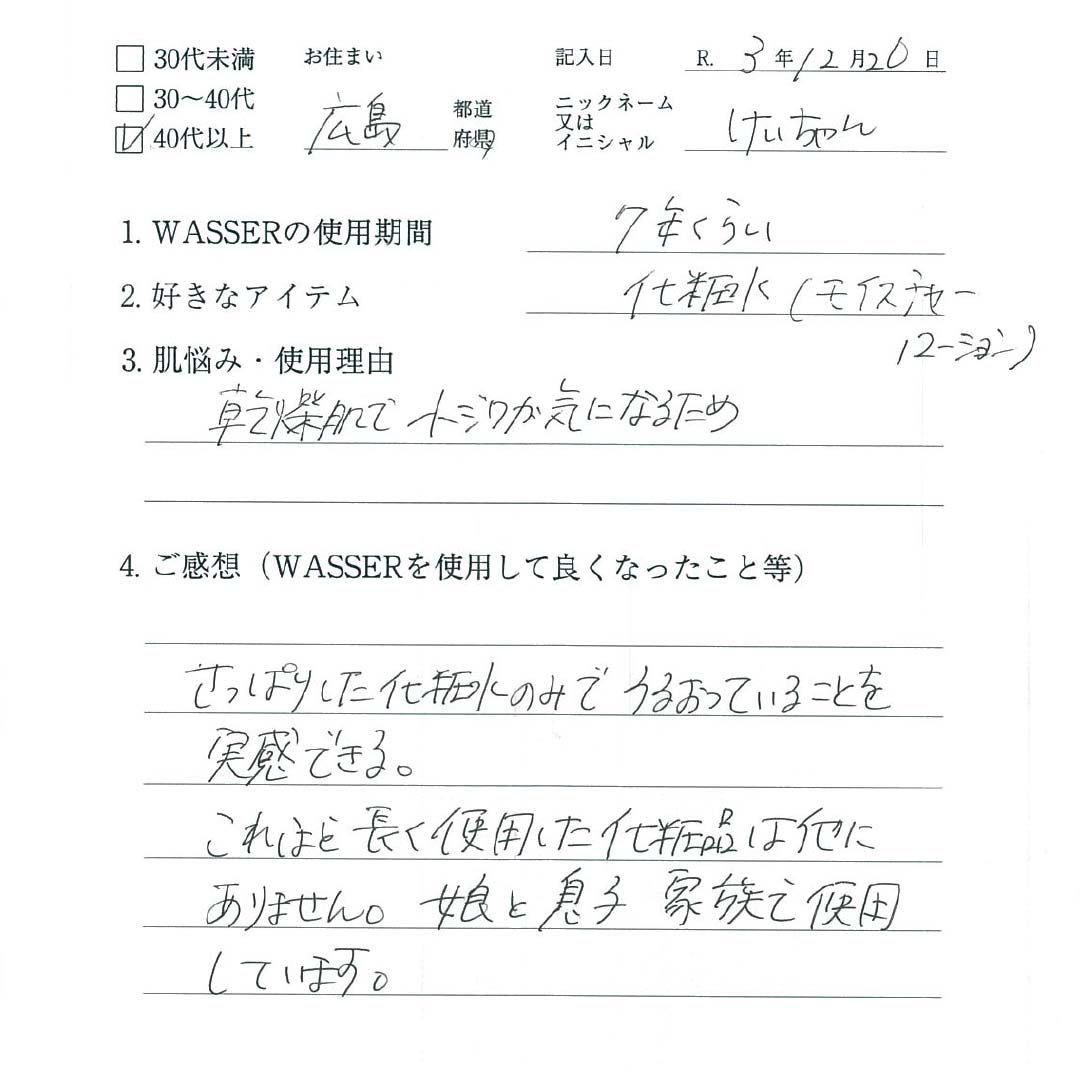 □ 30代未満 お住まい 記入日 R. 3年12月20日
□ 30〜40代 広島 都道府県 ニックネーム又はイニシャル けいちゃん
☑ 40代以上
1. WASSERの使用期間 7年くらい
2. 好きなアイテム 化粧水(モイスチャー
ローション)
3. 肌悩み・使用理由
乾燥肌で小ジワが気になるため
4. ご感想（WASSERを使用して良くなったこと等）
さっぱりした化粧水のみでうるおっていることを
実感できる。
これほど長く使用した化粧品は他に
ありません。娘と息子 家族で使用
しています。